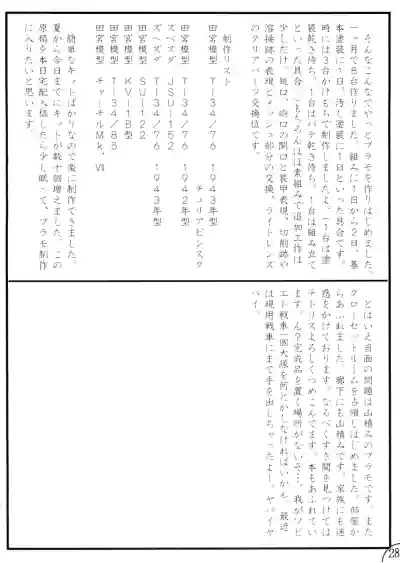 そんなこんなでやっとプラモを作りはじめました。
一ヶ月で８台作りました。組みに１日から２日、基
本塗装に１日、汚し塗装に１日といった具合です。
時には３台かけもちで制作しましたよ。（１台は塗
装乾き待ち。１台はパテ乾き待ち。１台は組み立て
といった具合。）もちろんほぼ素組みで追加工作は
少しだけ。砲口、銃口の開口と装甲表現、切削跡や
溶接跡の表現とメッシュ部分の交換、ライトレンズ
のクリアパーツ交換位です。
制作リスト
田宮模型　Ｔ－３４／７６　１９４３年型
チェリアビンスク
田宮模型　Ｔ－３４／７６　１９４２年型
ズベズダ　ＪＳＵ－１５２
ズベズダ　Ｔ－３４／７６　１９４３年型
田宮模型　ＳＵ－１２２
田宮模型　ＫＶ－１Ｂ型
田宮模型　Ｔ－３４／８５
田宮模型　チャーチルＭｋ，Ⅶ
簡単なキットばかりなので楽に制作できました。
夏から今日までにキットが数十個増えました。この
原稿を本日宅配入稿したら少し眠って、プラモ制作
に入りたいと思います。
とはいえ当面の問題は山積みのプラモです。また
クローゼットルームを占領しはじめました。部屋か
らあふれました。廊下にも山積みです。家族にも迷
惑をかけております。なるべくすき間を見つけては
テトリスよろしくつめこんでます。本もあふれてい
ます。ん？完成品を置く場所がないぞ…。我がソビ
エト戦車一個大隊を何とかしなければいかん。最近
は現用戦車にまで手を出しちゃったよー。ヤバイヤ
バイ。
28